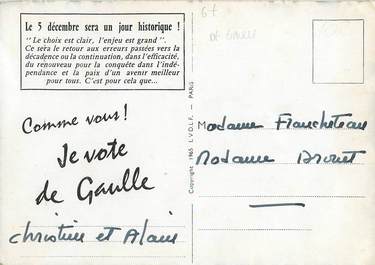 Le 5 décembre sera un jour historique !
" Le choix est clair, l'enjeu est grand ".
Ce sera le retour aux erreurs passées vers la
décadence ou la continuation, dans l'efficacité,
du renouveau pour la conquête dans l'indé-
pendance et la paix d'un avenir meilleur
pour tous. C'est pour cela que...
Comme vous !
Je vote
de Gaulle
Christine et Alain
Copyright 1965 L.V.D.L.F. — PARIS
67
DE GAULLE
Madame Francheteau
Madame